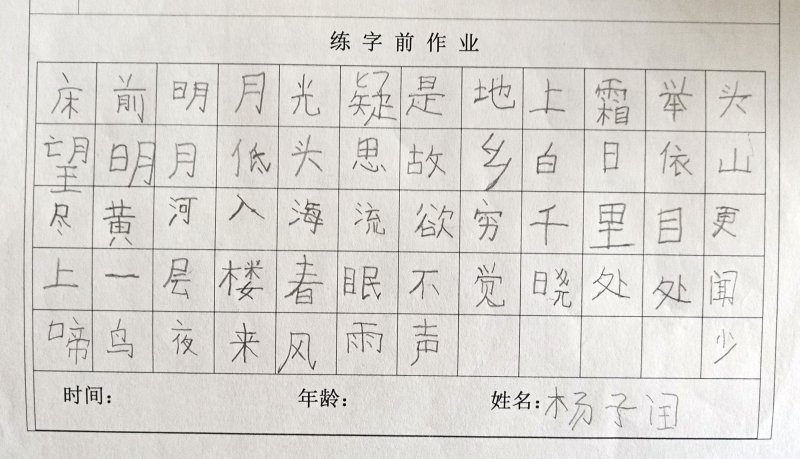 练字前作业
床前明月光疑是地上霜举头
望明月低头思故乡白日依山
尽黄河入海流欲穷千里目更
上一层楼春眠不觉晓处处闻
啼鸟夜来风雨声 少
时间： 年龄： 姓名：杨子闰